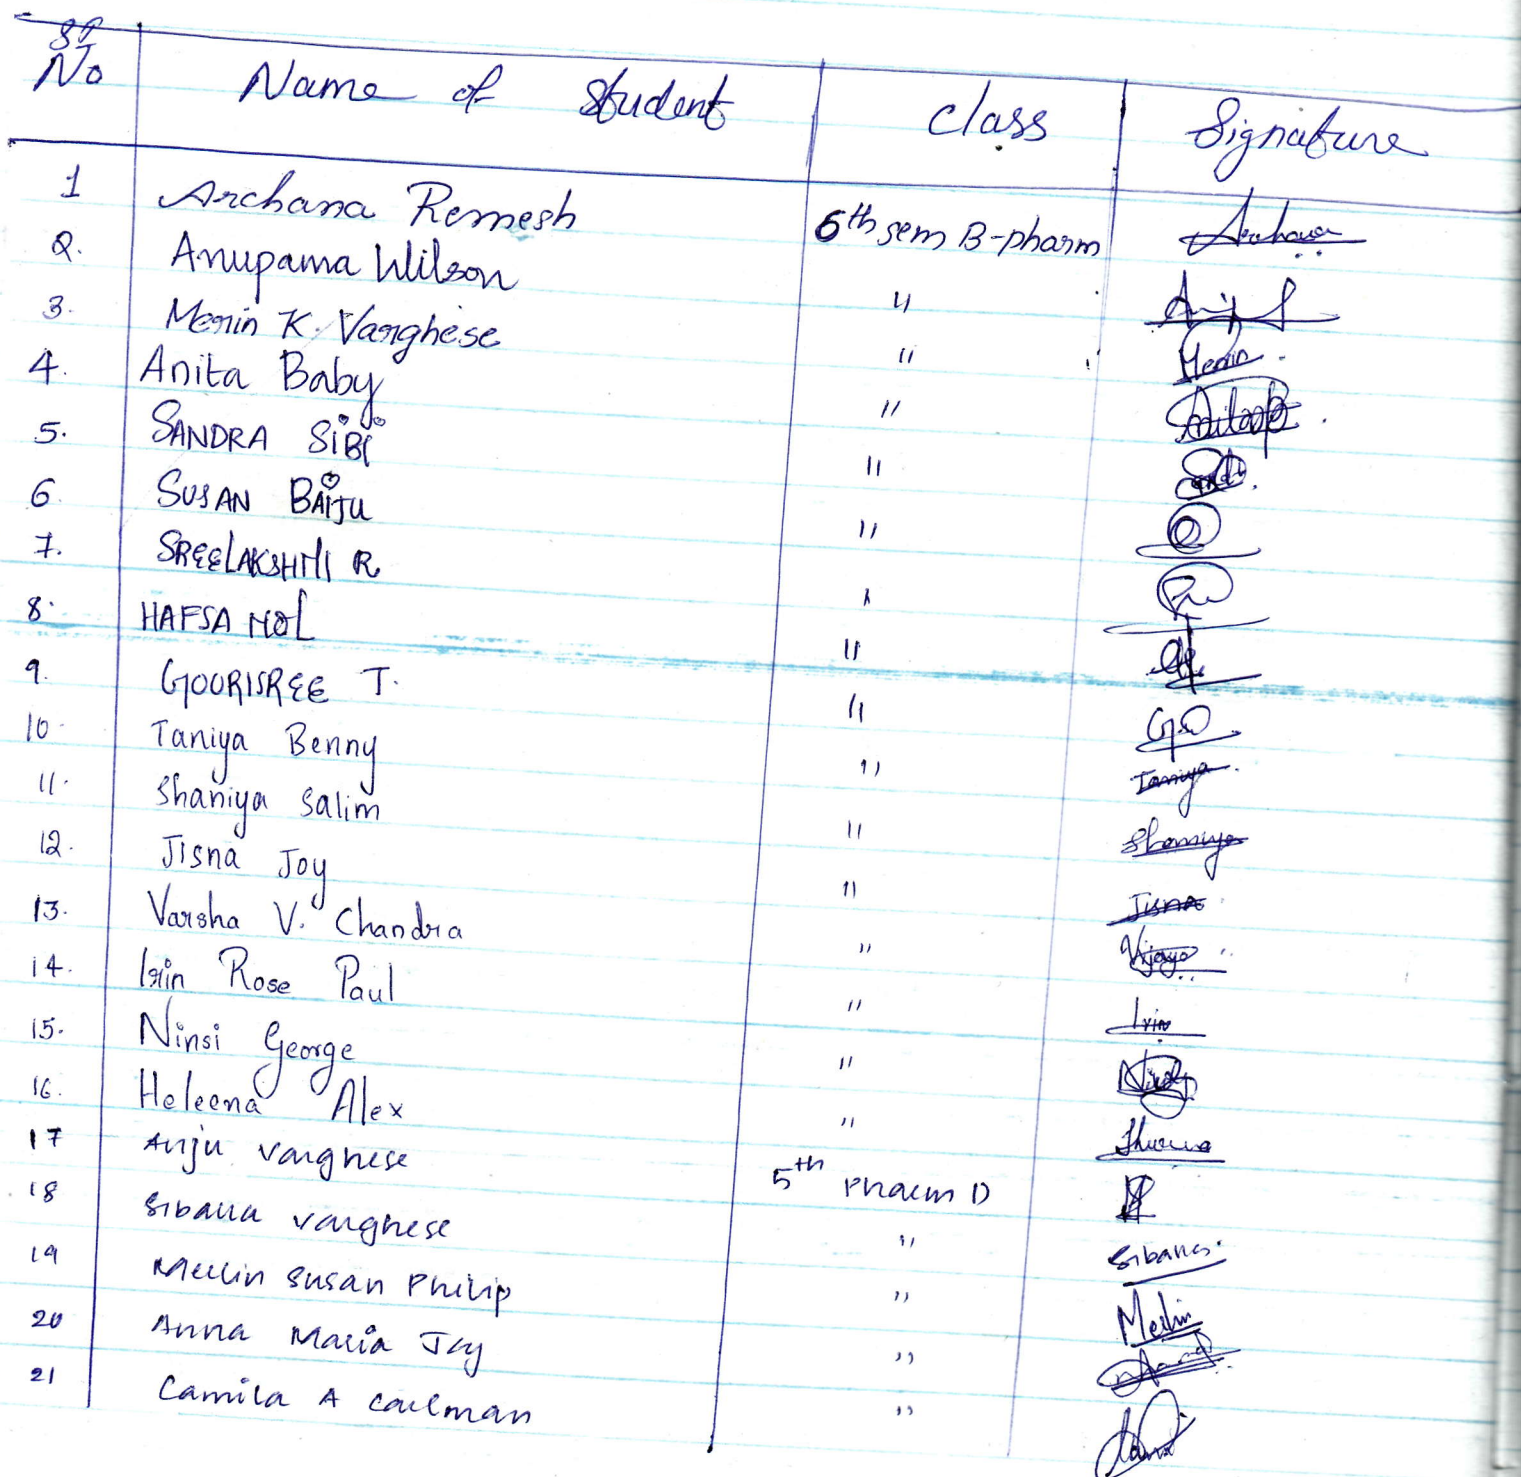 Sl
No Name of Student Class Signature
1 Archana Remesh 6th sem B-pharm Archana
2. Anupama Wilson "
3. Merin K. Varghese " Merin
4. Anita Baby " Anita
5. SANDRA SiBi "
6. SUSAN BAiJU "
7. SREELAKSHMI R
8. HAFSA MOL "
9. GOURISREE T. "
10. Taniya Benny " Taniya
11. Shaniya Salim " Shaniya
12. Jisna Joy " Jisna
13. Varsha V. Chandra "
14. Irin Rose Paul " Irin
15. Ninsi George "
16. Heleena Alex "
17 Anju varghese 5th pharm D
18 Sibana varghese " Sibana
19 Merlin susan Philip " Merlin
20 Anna Maria Joy "
21 Camila A Carlman "